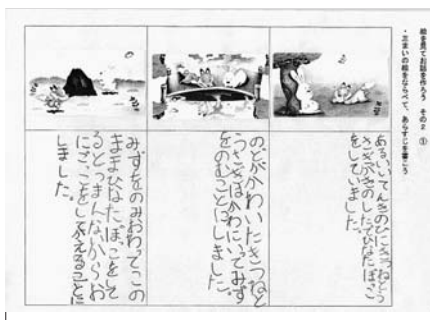 絵を見てお話を作ろう その2 ①
・三まいの絵をならべて、あらすじを書こう
あるいいてんきのひにきつねとう
さぎがきのしたでひなたぼっこ
をしていました。
のどがかわいたきつねと
うさぎはかわにいってみず
をのむことにしました。
みずをのみおわってこの
ままひなたぼっこをして
るとつまんないからお
にごっこをしてかえることに
しました。